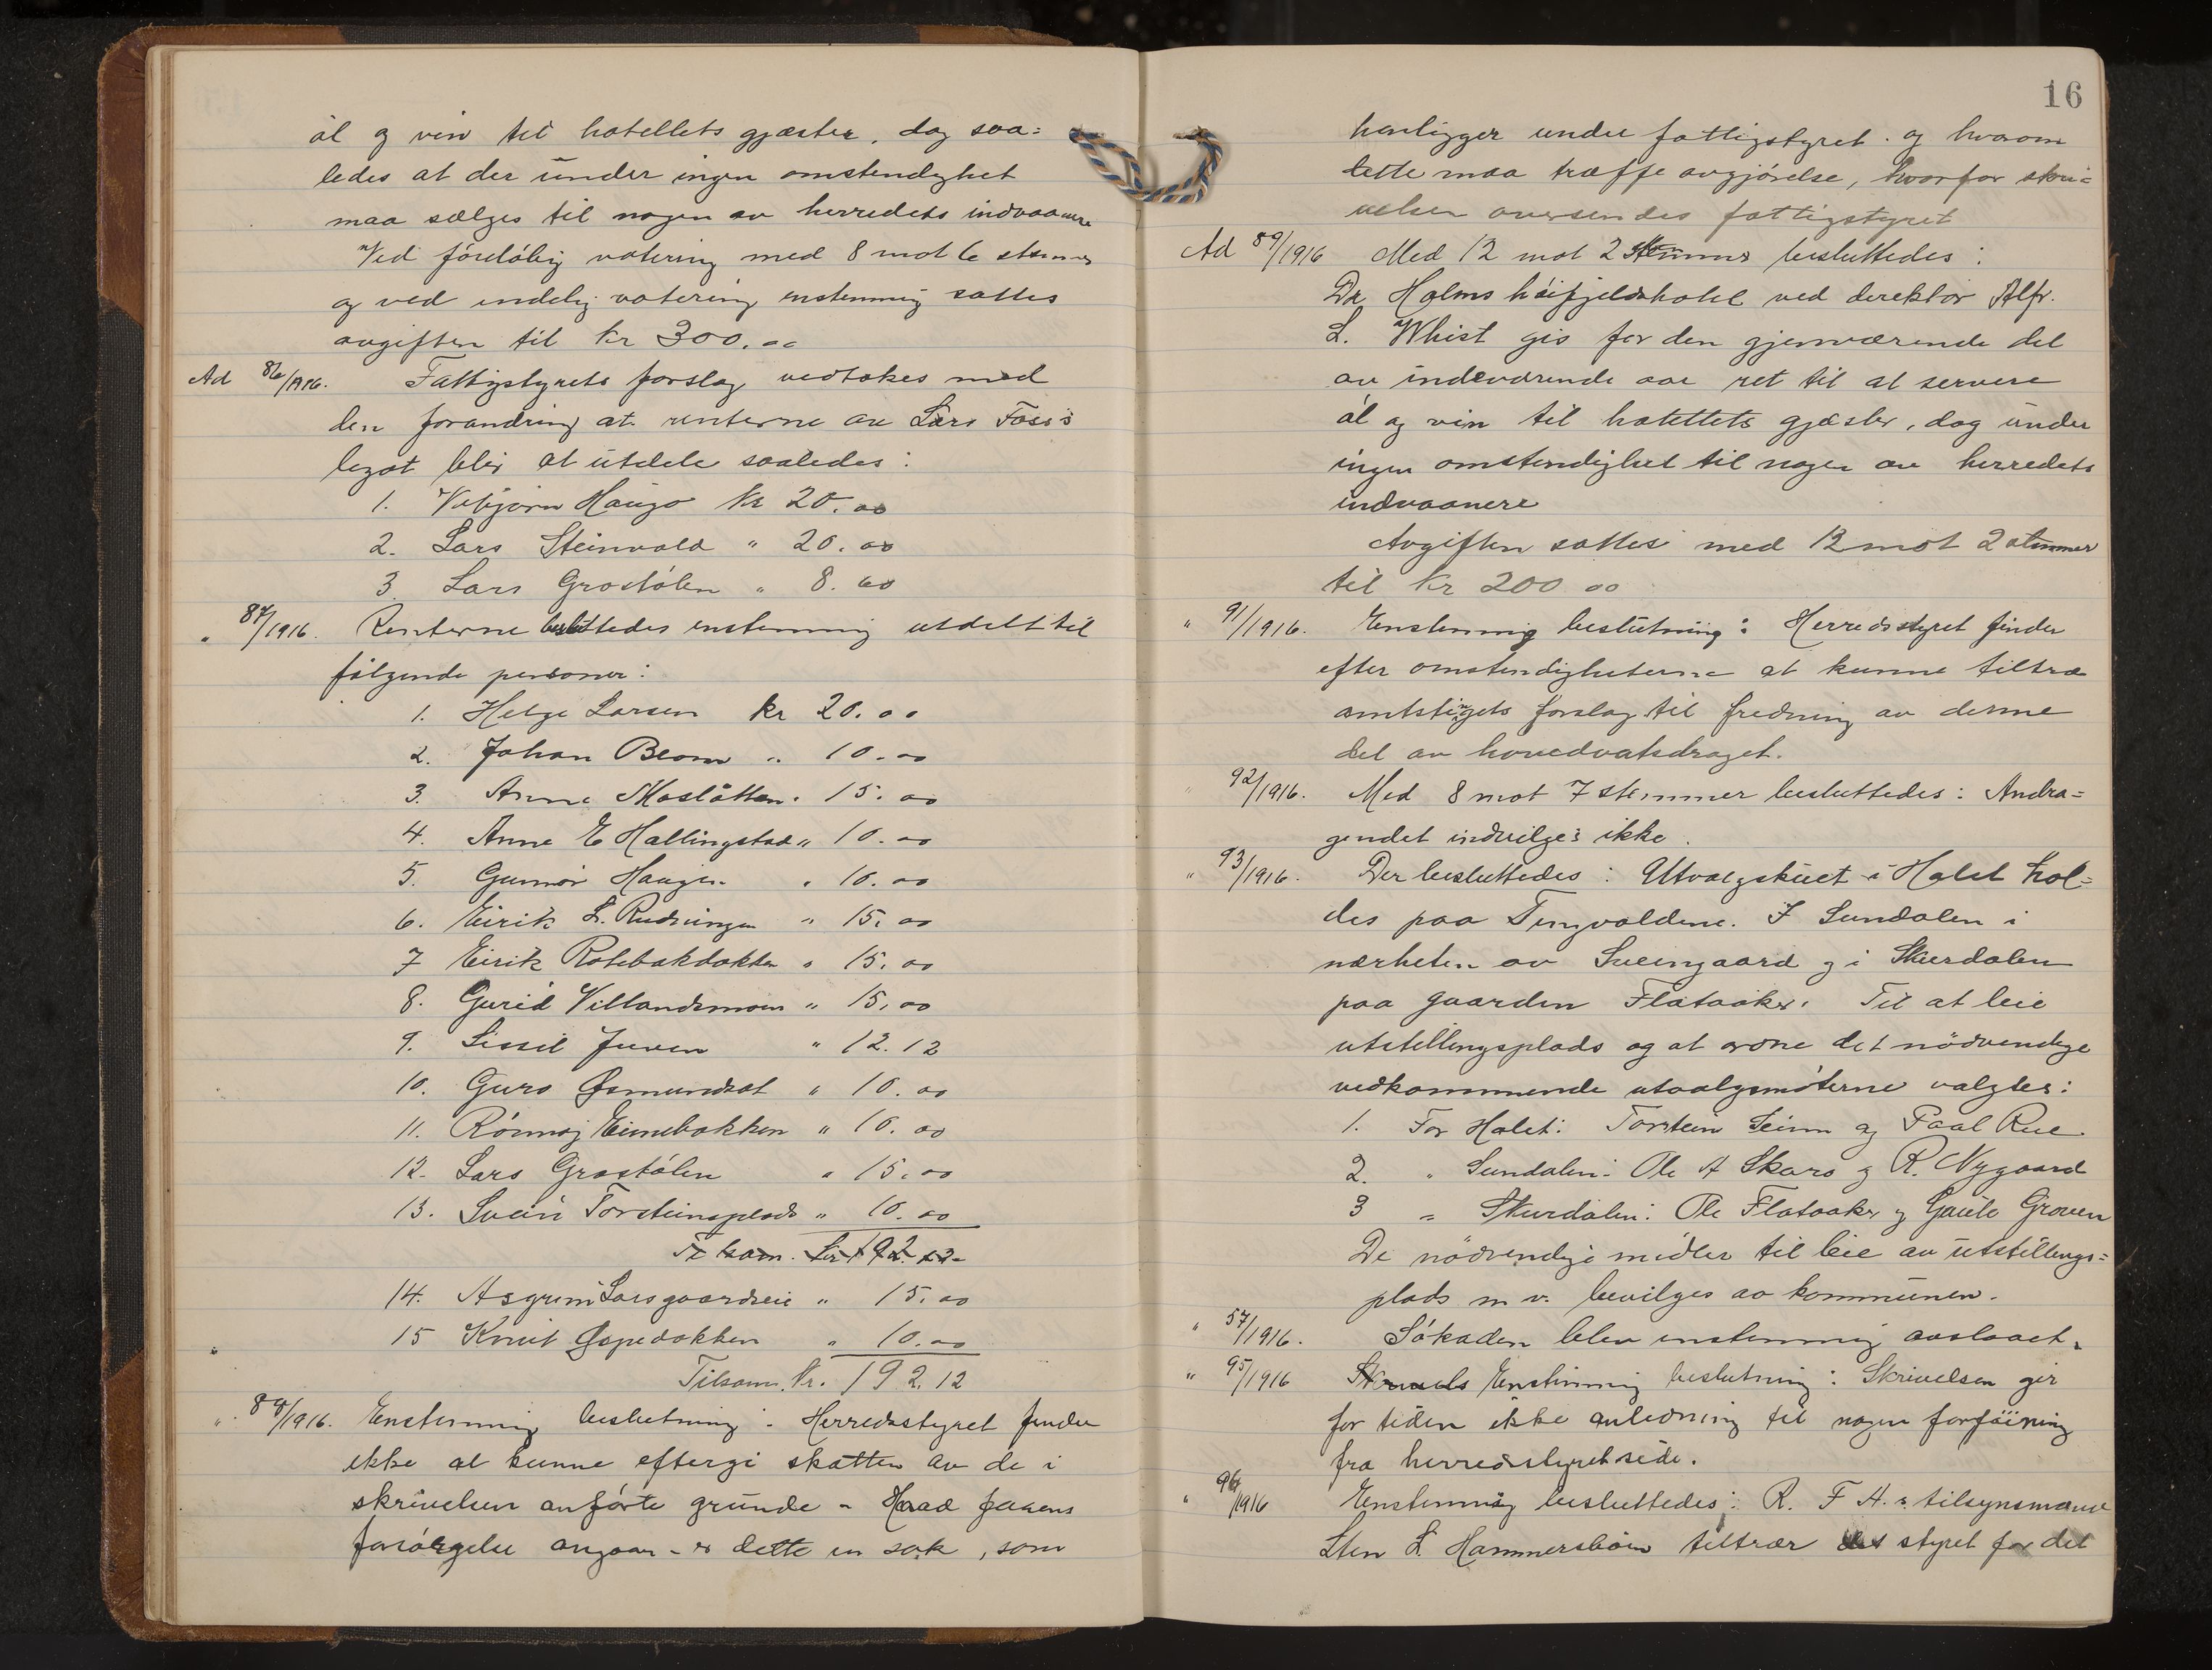 øl og vin til hotellets gjæster, dog saa=
ledes at der under ingen omstendighet
maa sælges til nogen av herredets indvaanere
Ved foreløbig votering med 8 mot 6 stemmer
og ved endelig votering enstemmig sattes
avgiften til kr 300.00
Ad 86/1916. Fattigstyrets forslag vedtokes med
den forandring at renterne av Lars Foss's
legat blir at utdele saaledes:
1. Vebjørn Haugo kr 20.00
2. Lars Steinvold " 20.00
3. Lars Grostølen " 8.60
" 87/1916. Renterne besluttedes enstemmig utdelt til
følgende personer:
1. Helge Larsen kr 20.00
2. Johan Beom " 10.00
3. Anne Moslåtten " 15.00
4. Anne E Hallingstad " 10.00
5. Gunnór Haugen " 10.00
6. Eirik L. Rudningen " 15.00
7 Eirik Rotebakdokken " 15.00
8. Gurid Villandsmoen " 15.00
9. Sissil Juven " 12.12
10. Guro Øsmundsat " 10.00
11. Rónnaj Eimebakken " 10.00
12. Lars Grostølen " 15.00
13. Svein Torsteinsplads " 10.00
Tilsam. kr 192.12
14. Asgrim Larsgaardseie " 15.00
15 Knut Gopedokken " 10.00
Tilsam. kr. 192.12
" 88/1916. Enstemmig beslutning: Herredsstyret finder
ikke at kunne eftergi skatten av de i
skrivelsen anførte grunde - Hvad farens
forsørgelse angaar - er dette en sak, som
16
henligger under fattigstyret og hvorom
dette maa træffe avgjørelse, hvorfor skri=
velsen oversendes fattigstyret
Ad 89/1916 Med 12 mot 2 stemmer besluttedes:
Dr. Holms høifjeldshotel ved direktør Alfr.
L. Whist gis for den gjenværende del
av indeværende aar ret til at servere
øl og vin til hotellets gjæster, dog under
ingen omstendighet til nogen av herredets
indvaanere
Avgiften sattes med 12 mot 2 stemmer
til kr 200 00
" 91/1916. Enstemmig beslutning: Herredsstyret finder
efter omstendigheterne at kunne tiltræ
amtstingets forslag til fredning av denne
del av hovedvatsdraget.
" 92/1916. Med 8 mot 7 stemmer besluttedes: Andra=
gendet indvilges ikke.
" 93/1916. Der besluttedes: Utvalgskuet i Holet hol=
des paa Tingvoldene. I Sundalen i
nærheten av Sveingaard og i Skurdalen
paa gaarden Flataaker. Til at leie
utstillingsplads og at ordne det nödvendige
vedkommende utvalgsmøterne valgtes:
1. For Holet: Torstein Seim og Paal Rue
2. " Sundalen: Ole A Skaro og R. Nygaard
3 " Skurdalen: Ole Flataaker og Gaute Groven
De nödvendige midler til leie av utstillings=
plads m v. bevilges av kommunen.
" 57/1916. Søknaden blev enstemmig avslaaet.
" 95/1916 Enstemmig beslutning: Skrivelsen gir
for tiden ikke anledning til nogen forføining
fra herredsstyrets side.
" 96/1916 Enstemmig besluttedes: R. F A.s tilsynsmand
Sten L. Hammersbøen tiltrær styret for det